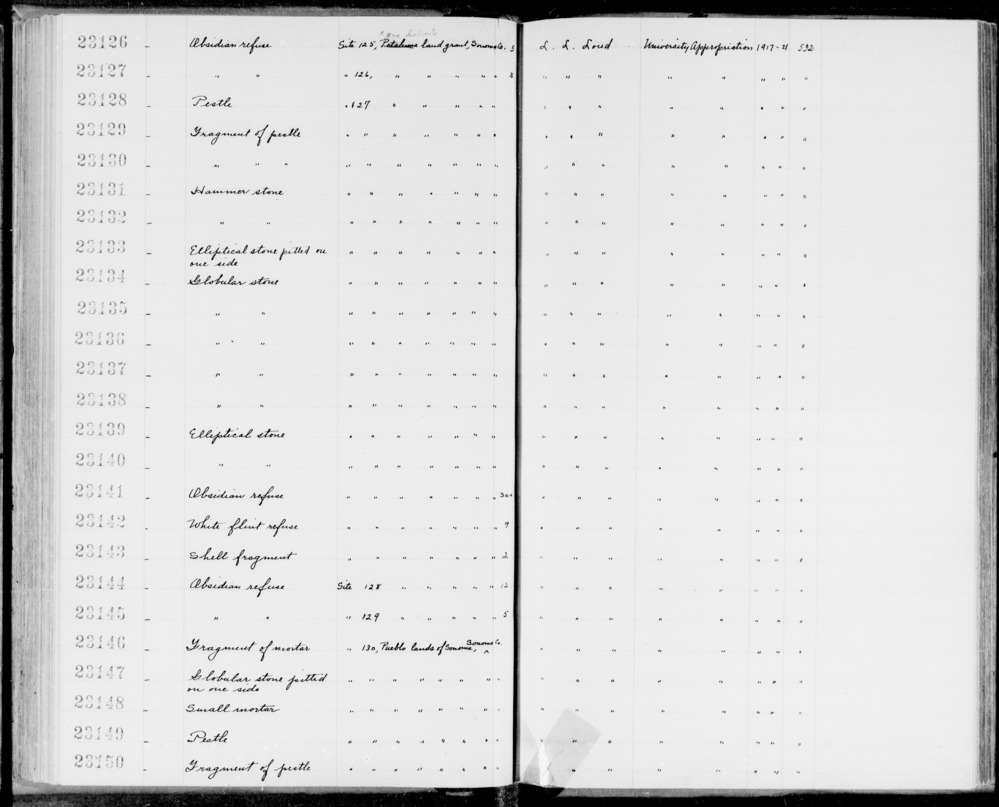 23126 - Obsidian refuse Site 125, Petaluma land grant, Sonoma Co. 3 L. L. Loud University Appropriation 1917-21 532
23127 - " " " 126, " " " " " 8 " " " " " " " "
23128 - Pestle " 127 " " " " " " " " " " " " "
23129 - Fragment of pestle " " " " " " " " " " " " " " "
23130 - " " " " " " " " " " " " " " " " " "
23131 - Hammer stone " " " " " " " " " " " " " " "
23132 - " " " " " " " " " " " " " " " " "
23133 - Elliptical stone pitted on " " " " " " " " " " " " " " "
one side
23134 - Globular stone " " " " " " " " " " " " " " "
23135 - " " " " " " " " " " " " " " " " "
23136 - " " " " " " " " " " " " " " " " "
23137 - " " " " " " " " " " " " " " " " "
23138 - " " " " " " " " " " " " " " " " "
23139 - Elliptical stone " " " " " " " " " " " " " " "
23140 - " " " " " " " " " " " " " " " " "
23141 - Obsidian refuse " " " " " " " " " " " " " " "
23142 - White flint refuse " " " " " " " 9 " " " " " " " "
23143 - Shell fragment " " " " " " " 2 " " " " " " " "
23144 - Obsidian refuse Site 128 " " " " " 12 " " " " " " " "
23145 - " " " 129 " " " " " 5 " " " " " " " "
23146 - Fragment of mortar " 130, Pueblo lands of Sonoma, Sonoma Co. " " " " " " " "
23147 - Globular stone pitted " " " " " " " " " " " " " " "
on one side
23148 - Small mortar " " " " " " " " " " " " " " "
23149 - Pestle " " " " " " " " " " " " " " "
23150 - Fragment of pestle " " " " " " " " " " " " " " "